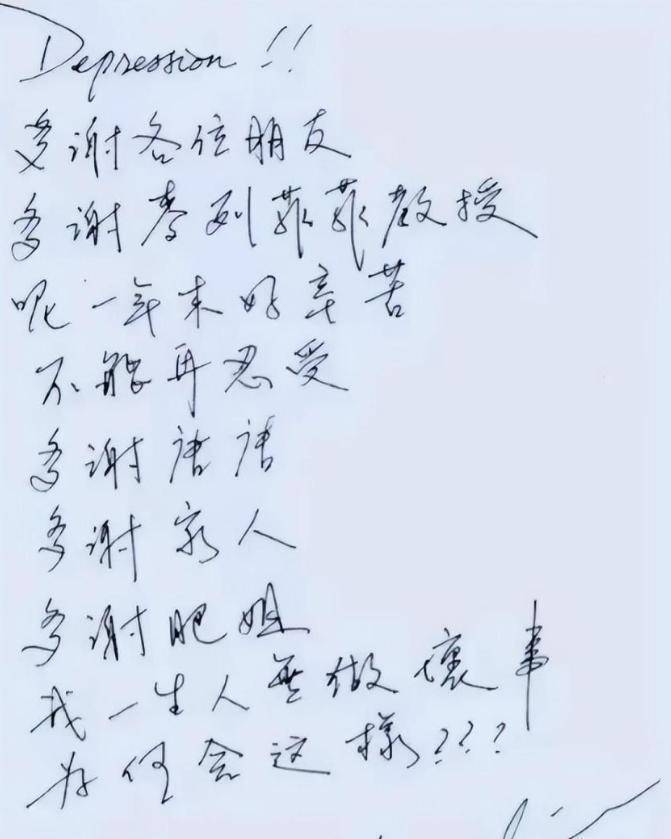 Depression!!
多謝各位朋友
多謝麥列菲菲教授
呢一年來好辛苦
不能再忍受
多謝唐唐
多謝家人
多謝肥姐
我一生人無做壞事
为何會这樣???